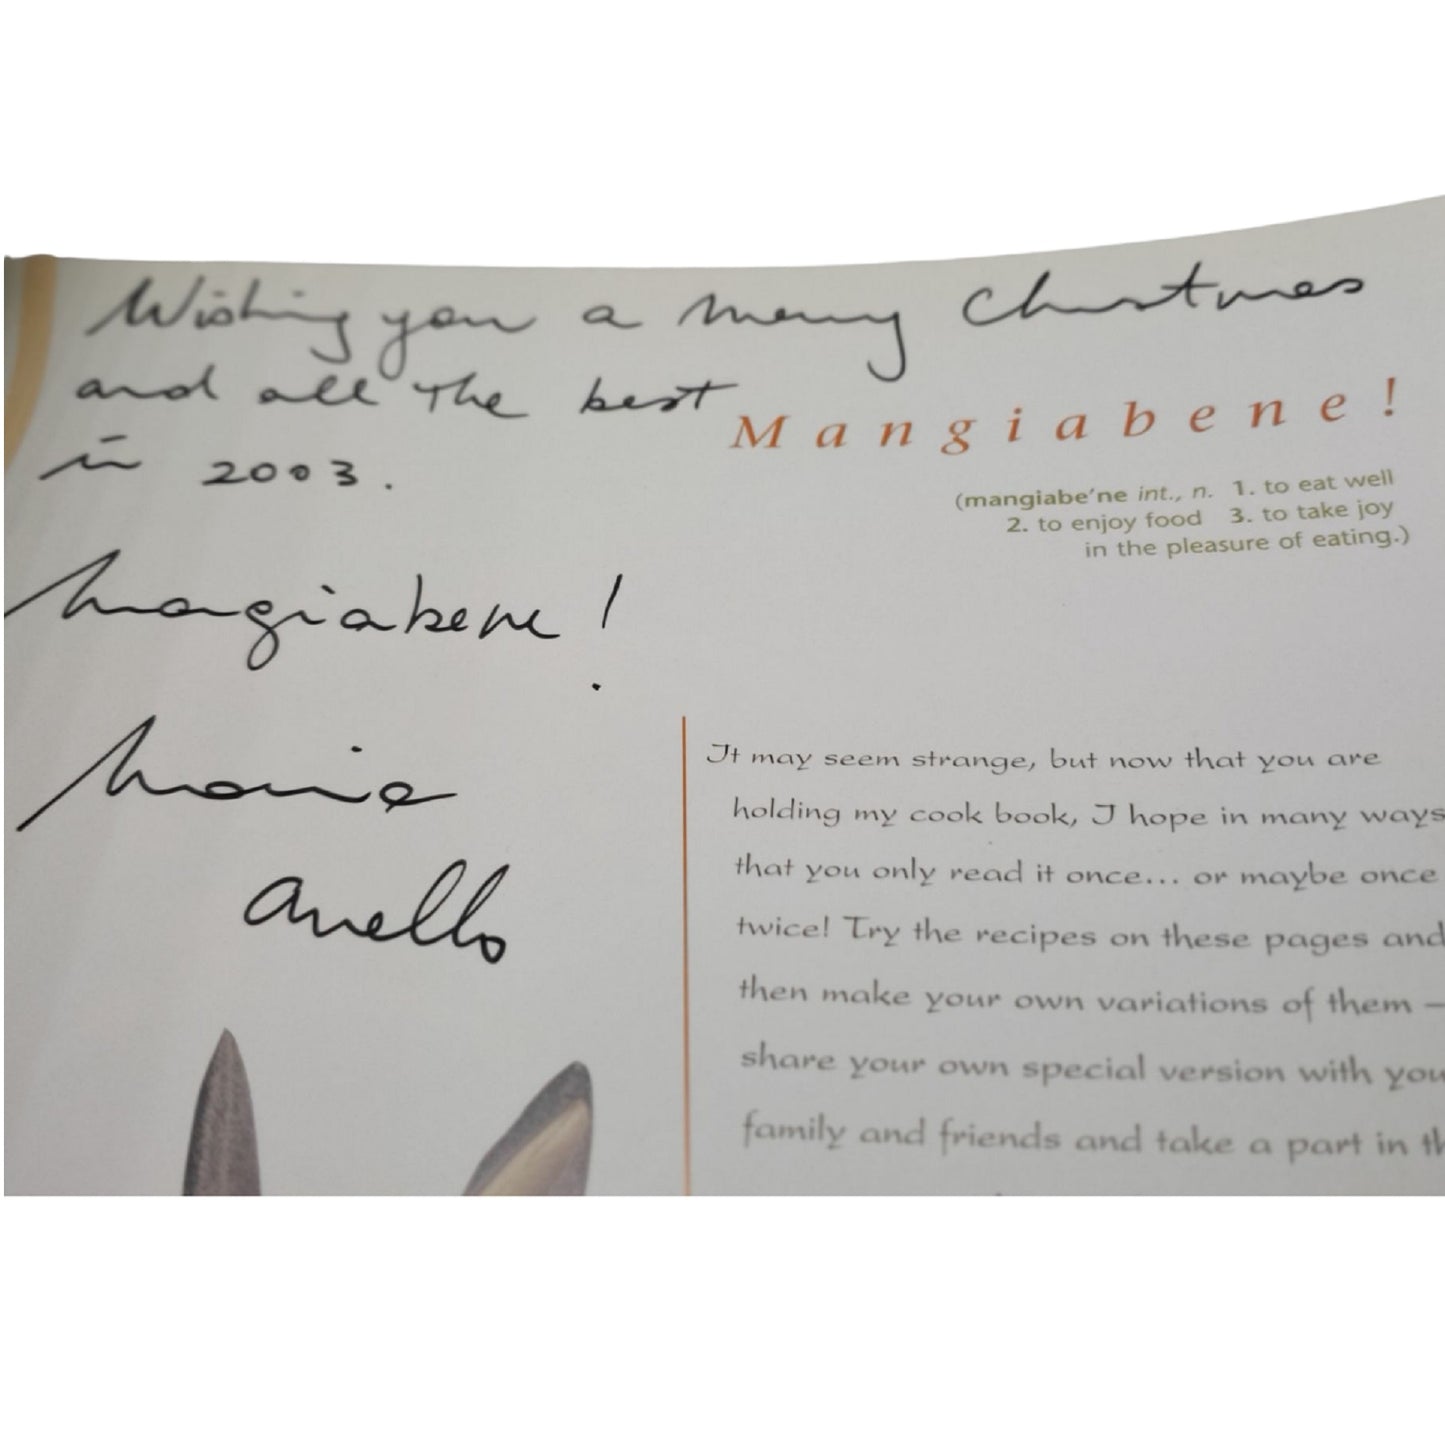 Wishing you a merry Christmas
and all the best
in 2003.
Mangiabene!
Maria
Anello
Mangiabene!
(mangiabe'ne int., n. 1. to eat well
2. to enjoy food 3. to take joy
in the pleasure of eating.)
It may seem strange, but now that you are
holding my cook book, I hope in many ways
that you only read it once... or maybe once
twice! Try the recipes on these pages and
then make your own variations of them –
share your own special version with you
family and friends and take a part in th